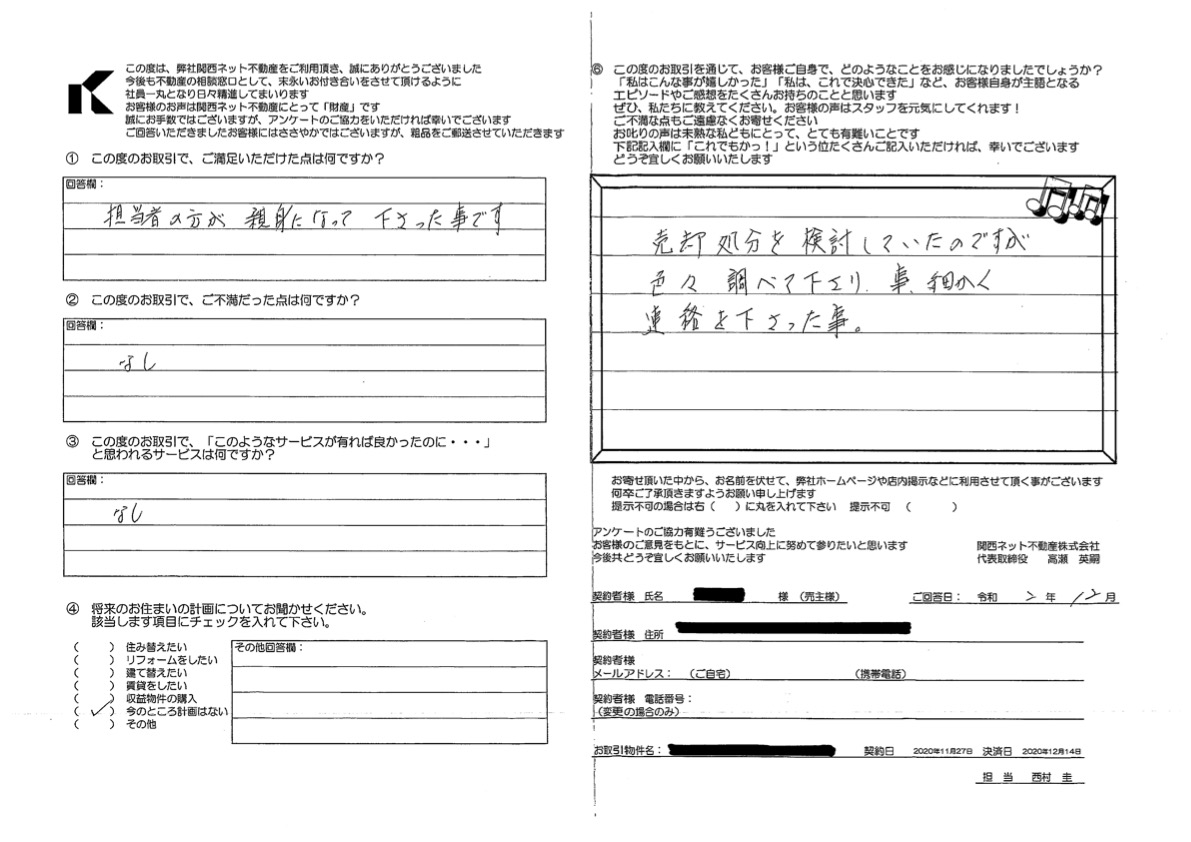 この度は、弊社関西ネット不動産をご利用頂き、誠にありがとうございました
今後も不動産の相談窓口として、末永いお付き合いをさせて頂けるように
社員一丸となり日々精進してまいります
お客様のお声は関西ネット不動産にとって「財産」です
誠にお手数ではございますが、アンケートのご協力をいただければ幸いでございます
ご回答いただきましたお客様にはささやかではございますが、粗品をご郵送させていただきます
① この度のお取引で、ご満足いただけた点は何ですか？
回答欄：
担当者の方が 親身になって 下さった事です
② この度のお取引で、ご不満だった点は何ですか？
回答欄：
なし
③ この度のお取引で、「このようなサービスが有れば良かったのに・・・」
と思われるサービスは何ですか？
回答欄：
なし
④ 将来のお住まいの計画についてお聞かせください。
該当します項目にチェックを入れて下さい。
（　　）住み替えたい
（　　）リフォームをしたい
（　　）建て替えたい
（　　）賃貸をしたい
（　　）収益物件の購入
（ ✓ ）今のところ計画はない
（　　）その他
その他回答欄：
⑥ この度のお取引を通じて、お客様ご自身で、どのようなことをお感じになりましたでしょうか？
「私はこんな事が嬉しかった」「私は、これで決心できた」など、お客様自身が主語となる
エピソードやご感想をたくさんお持ちのことと思います
ぜひ、私たちに教えてください。お客様の声はスタッフを元気にしてくれます！
ご不満な点もご遠慮なくお寄せください
お叱りの声は未熟な私どもにとって、とても有難いことです
下記記入欄に「これでもかっ！」という位たくさんご記入いただければ、幸いでございます
どうぞ宜しくお願いいたします
売却処分を検討していたのですが
色々 調べて下さり、事細かく
連絡を下さった事。
お寄せ頂いた中から、お名前を伏せて、弊社ホームページや店内掲示などに利用させて頂く事がございます
何卒ご了承頂きますようお願い申し上げます
提示不可の場合は右（　　）に丸を入れて下さい 提示不可（　　　）
アンケートのご協力有難うございました
お客様のご意見をもとに、サービス向上に努めて参りたいと思います
今後共どうぞ宜しくお願いいたします
関西ネット不動産株式会社
代表取締役 高瀬 英嗣
契約者様 氏名 様（売主様） ご回答日： 令和 2 年 12 月
契約者様 住所
契約者様
メールアドレス： （ご自宅） （携帯電話）
契約者様 電話番号：
（変更の場合のみ）
お取引物件名： 契約日 2020年11月27日 決済日 2020年12月14日
担当 西村 圭